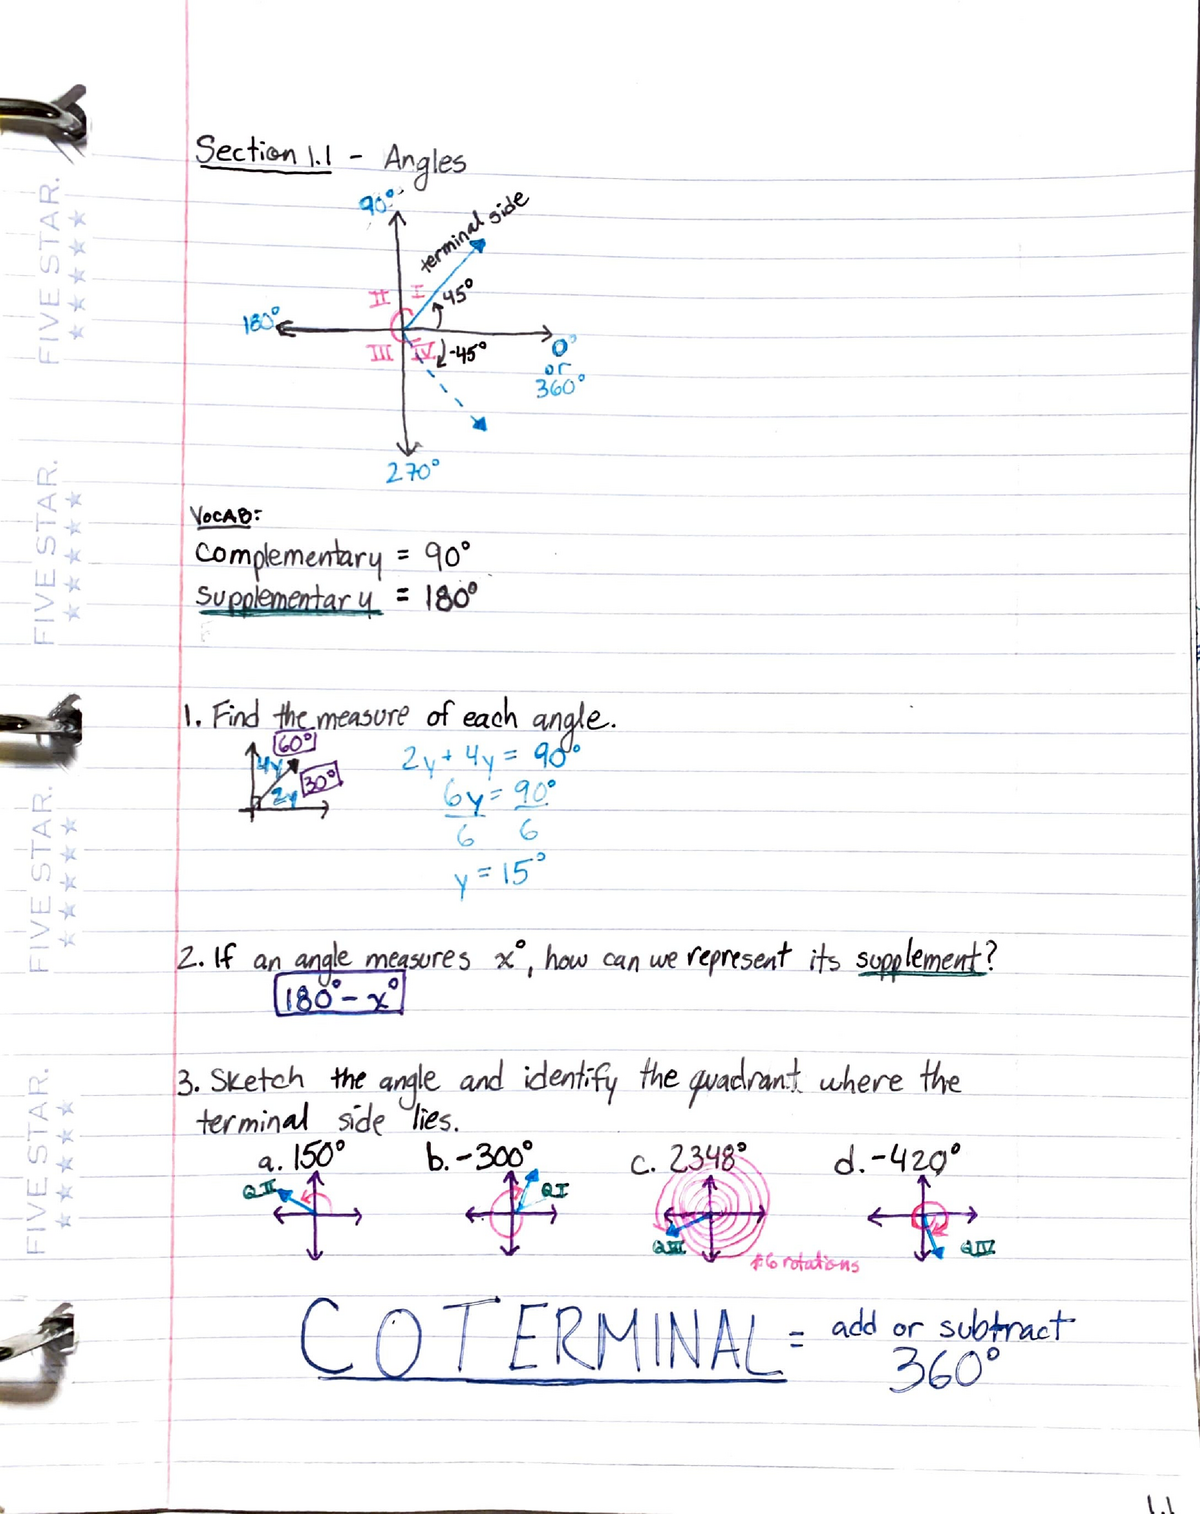 Section 1.1 - Angles
90°
terminal side
II I 45°
180°
III IV -45° 0°
or
360°
270°
VOCAB:
Complementary = 90°
Supplementary = 180°
1. Find the measure of each angle.
60°
4y 2y + 4y = 90°
30°
2y 6y = 90°
6 6
y = 15°
2. If an angle measures x°, how can we represent its supplement?
180° - x°
3. Sketch the angle and identify the quadrant where the
terminal side lies.
a. 150° b. -300° c. 2348° d. -420°
QII QI
QIII QIV
6 rotations
COTERMINAL = add or subtract
360°
1.1
FIVE STAR.
FIVE STAR.
FIVE STAR.
FIVE STAR.